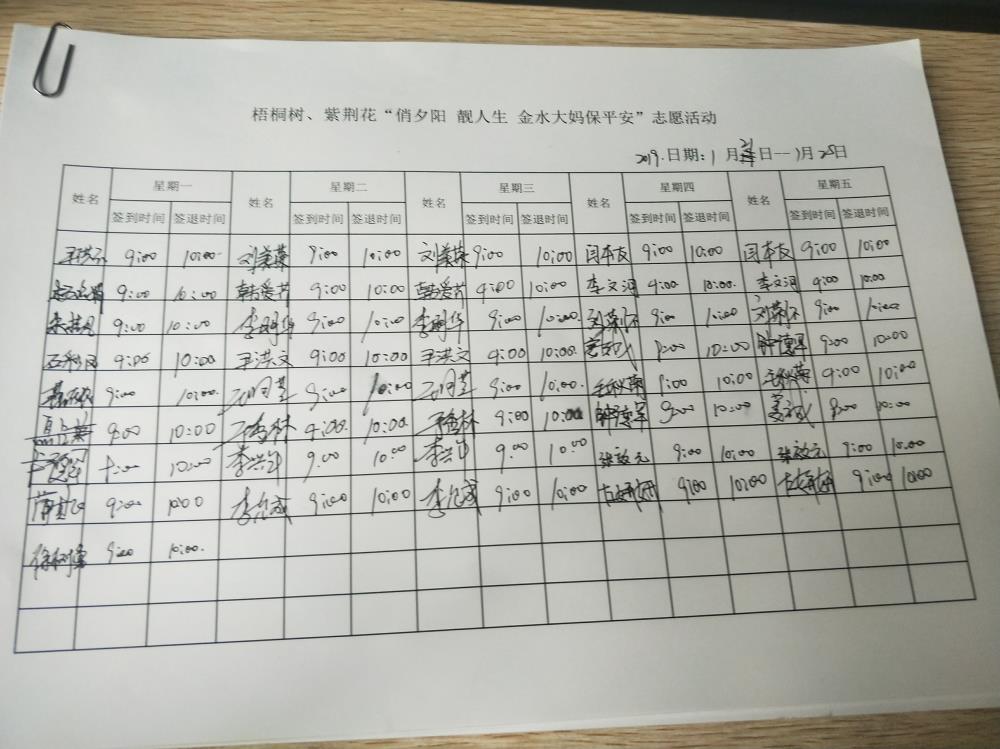 梧桐树、紫荆花“俏夕阳 靓人生 金水大妈保平安”志愿活动
2019.日期:1月21日--1月25日
姓名 星期一 姓名 星期二 姓名 星期三 姓名 星期四 姓名 星期五
签到时间 签退时间 签到时间 签退时间 签到时间 签退时间 签到时间 签退时间 签到时间 签退时间
9:00 10:00 刘美荣 9:00 10:00 刘美荣 9:00 10:00 闫本友 9:00 10:00 闫本友 9:00 10:00
9:00 10:00 韩爱芹 9:00 10:00 韩爱芹 9:00 10:00 李文河 9:00 10:00 李文河 9:00 10:00
9:00 10:00 李明华 9:00 10:00 李明华 9:00 10:00 9:00 10:00 9:00 10:00
9:00 10:00 王洪文 9:00 10:00 王洪文 9:00 10:00 9:00 10:00 钟德军 9:00 10:00
9:00 10:00 9:00 10:00 9:00 10:00 毛秋菊 9:00 10:00 毛秋菊 9:00 10:00
9:00 10:00 9:00 10:00 9:00 10:00 钟德军 9:00 10:00 9:00 10:00
9:00 10:00 李兴军 9:00 10:00 李兴军 9:00 10:00 张效元 9:00 10:00 张效元 9:00 10:00
9:00 10:00 李允成 9:00 10:00 李允成 9:00 10:00 9:00 10:00 9:00 10:00
徐树勇 9:00 10:00